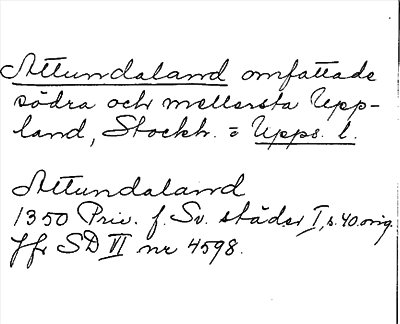 Attundaland omfattade
södra och mellersta Upp-
land, Stockh. = Upps. l.
Attundaland
1350 Priv. f. Sv. städer I, s. 40 orig.
Jfr SD VI nr 4598.